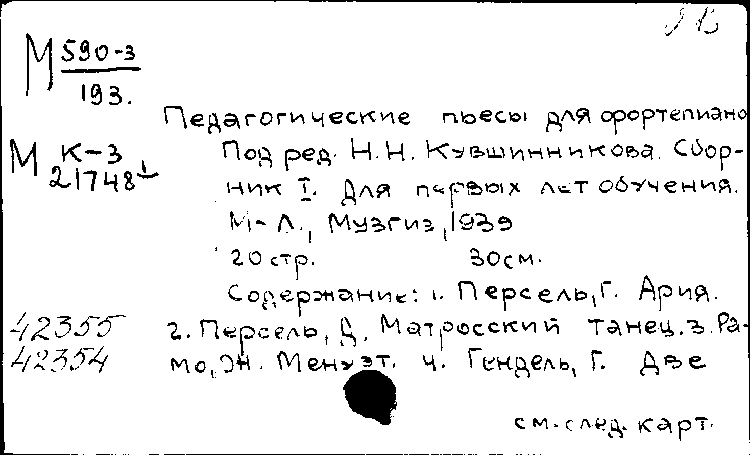 М 590-3
193.
Педагогические пьесы для фортепиано
М К-3
21748
Под ред. Н.Н. Кувшинникова. Сбор-
ник I. Для первых лет обучения.
М-Л., Музгиз, 1939
20 стр. 30 см.
Содержание: 1. Персель, Г. Ария.
42355 2. Персель, Д. Матросский танец. 3. Ра-
42354 мо, Ж. Менуэт. 4. Гендель, Г. Две
см. след. карт.